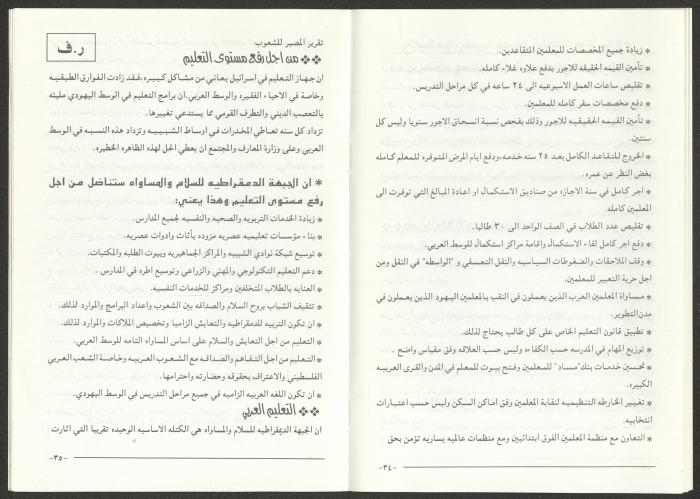 * زيادة جميع المخصصات للمعلمين المتقاعدين.
* تأمين القيمه الحقيقه للاجور بدفع علاوه غلاء كامله.
* تقليص ساعات العمل الاسبوعيه الى ٢٤ ساعه في كل مراحل التدريس.
* دفع مخصصات سفر كامله للمعلمين.
* تأمين القيمه الحقيقيه للاجور وذلك بفحص نسبة انسحاق الاجور سنويا وليس كل
سنتين.
* الخروج للتقاعد الكامل بعد ٢٥ سنه خدمه،ودفع ايام المرض المتوفره للمعلم كامله
بغض النظر عن عمره.
* اجر كامل في سنة الاجازه من صناديق الاستكمال او اعادة المبالغ التي توفرت الى
المعلمين كامله.
* تقليص عدد الطلاب في الصف الواحد الى ٣٠ طالبا.
* دفع اجر كامل لقاء الاستكمال واقامة مراكز استكمال للوسط العربي.
* وقف الملاحقات والضغوطات السياسيه والنقل التعسفي و "الواسطه" في النقل ومن
اجل حرية التعبير للمعلمين.
* مساواة المعلمين العرب الذين يعملون في النقب بالمعلمين اليهود الذين يعملون في
مدن التطوير.
* تطبيق قانون التعليم الخاص على كل طالب يحتاج لذلك.
* توزيع المهام في المدرسه حسب الكفاءه وليس حسب العلاقه وفق مقياس واضح .
* تحسين خدمات بنك"مساد" للمعلمين وفتح بيوت للمعلم في المدن والقرى العربيه
الكبيره.
* تغيير الخارطه التنظيميه لنقابة المعلمين وفق اماكن السكن وليس حسب اعتبارات
انتخابيه.
* التعاون مع منظمة المعلمين الفوق ابتدائيين ومع منظمات عالميه يساريه تؤمن بحق
-٣٤-
ر.ف
تقرير المصير للشعوب
❖❖ من اجل رفع مستوى التعليم
ان جهاز التعليم في اسرائيل يعاني من مشاكل كبيره،فقد زادت الفوارق الطبقيه
وخاصة في الاحياء الفقيره والوسط العربي.ان برامج التعليم في الوسط اليهودي مليئه
بالتعصب الديني والتطرف القومي مما يستدعي تغييرها.
تزداد كل سنه تعاطي المخدرات في اوساط الشبيبه وتزداد هذه النسبه في الوسط
العربي وعلى وزارة المعارف والمجتمع ان يعطي الحل لهذه الظاهره الخطيره.
* ان الجبهة الدمقراطيه للسلام والمساواه ستناضل من اجل
رفع مستوى التعليم وهذا يعني:
* زيادة الخدمات التربويه والصحيه والنفسيه لجميع المدارس.
* بناء مؤسسات تعليميه عصريه مزوده بأثاث وادوات عصريه.
* توسيع شبكة نوادي الشبيبه والمراكز الجماهيريه وبيوت الطلبه والمكتبات.
* دعم التعليم التكنولوجي والمهني والزراعي وتوسيع اطره في المدارس .
* العنايه بالطلاب المتخلفين ومراكز للخدمات النفسيه.
* تثقيف الشباب بروح السلام والصداقه بين الشعوب واعداد البرامج والموارد لذلك.
* ان تكون التربيه للدمقراطيه والتعايش الزاميا وتخصيص الملاكات والموارد لذلك.
* التعليم من اجل التعايش والسلام على اساس المساواه التامه للوسط العربي.
* التعليم من اجل التفاهم والصداقه مع الشعوب العربيه وخاصة الشعب العربي
الفلسطيني والاعتراف بحقوقه وحضارته واحترامها.
* ان تكون اللغه العربيه الزاميه في جميع مراحل التدريس في الوسط اليهودي.
❖❖ التعليم العربي
ان الجبهة الدمقراطيه للسلام والمساواه هي الكتله الاساسيه الوحيده تقريبا التي اثارت
-٣٥-